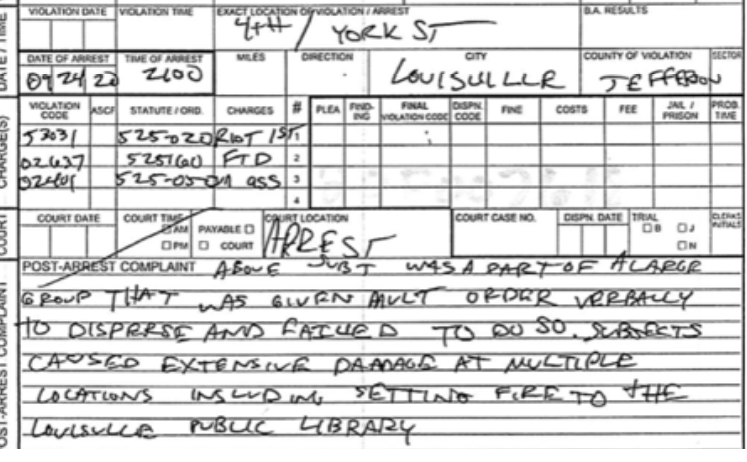 VIOLATION DATE VIOLATION TIME EXACT LOCATION OF VIOLATION / ARREST B.A. RESULTS
4TH / YORK ST
DATE / TIME
DATE OF ARREST TIME OF ARREST MILES DIRECTION CITY COUNTY OF VIOLATION SECTOR
09 24 20 2100 LOUISVILLE JEFFERSON
VIOLATION CODE ASCF STATUTE / ORD. CHARGES # PLEA FIND-ING FINAL VIOLATION CODE DISPN. CODE FINE COSTS FEE JAIL / PRISON PROB. TIME
CHARGE(S)
525-020 RIOT 1ST 1
FTD 2
525-050 ASS 3
4
COURT
COURT DATE COURT TIME AM PM PAYABLE COURT COURT LOCATION COURT CASE NO. DISPN. DATE TRIAL B J N CLERKS INITIALS
ARREST
POST-ARREST COMPLAINT
POST-ARREST COMPLAINT ABOVE SUBJ WAS A PART OF A LARGE
GROUP THAT WAS GIVEN MULT ORDER VERBALLY
TO DISPERSE AND FAILED TO DO SO. SUBJECTS
CAUSED EXTENSIVE DAMAGE AT MULTIPLE
LOCATIONS INSLUDING SETTING FIRE TO THE
LOUISVILLE PUBLIC LIBRARY